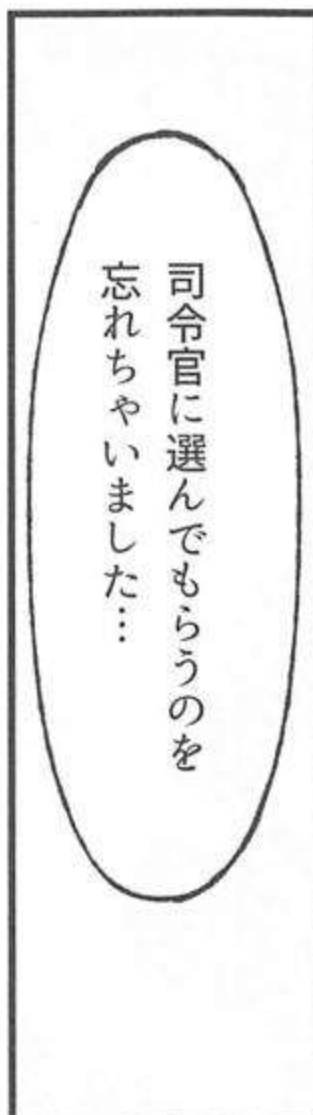 司令官に選んでもらうのを
忘れちゃいました…